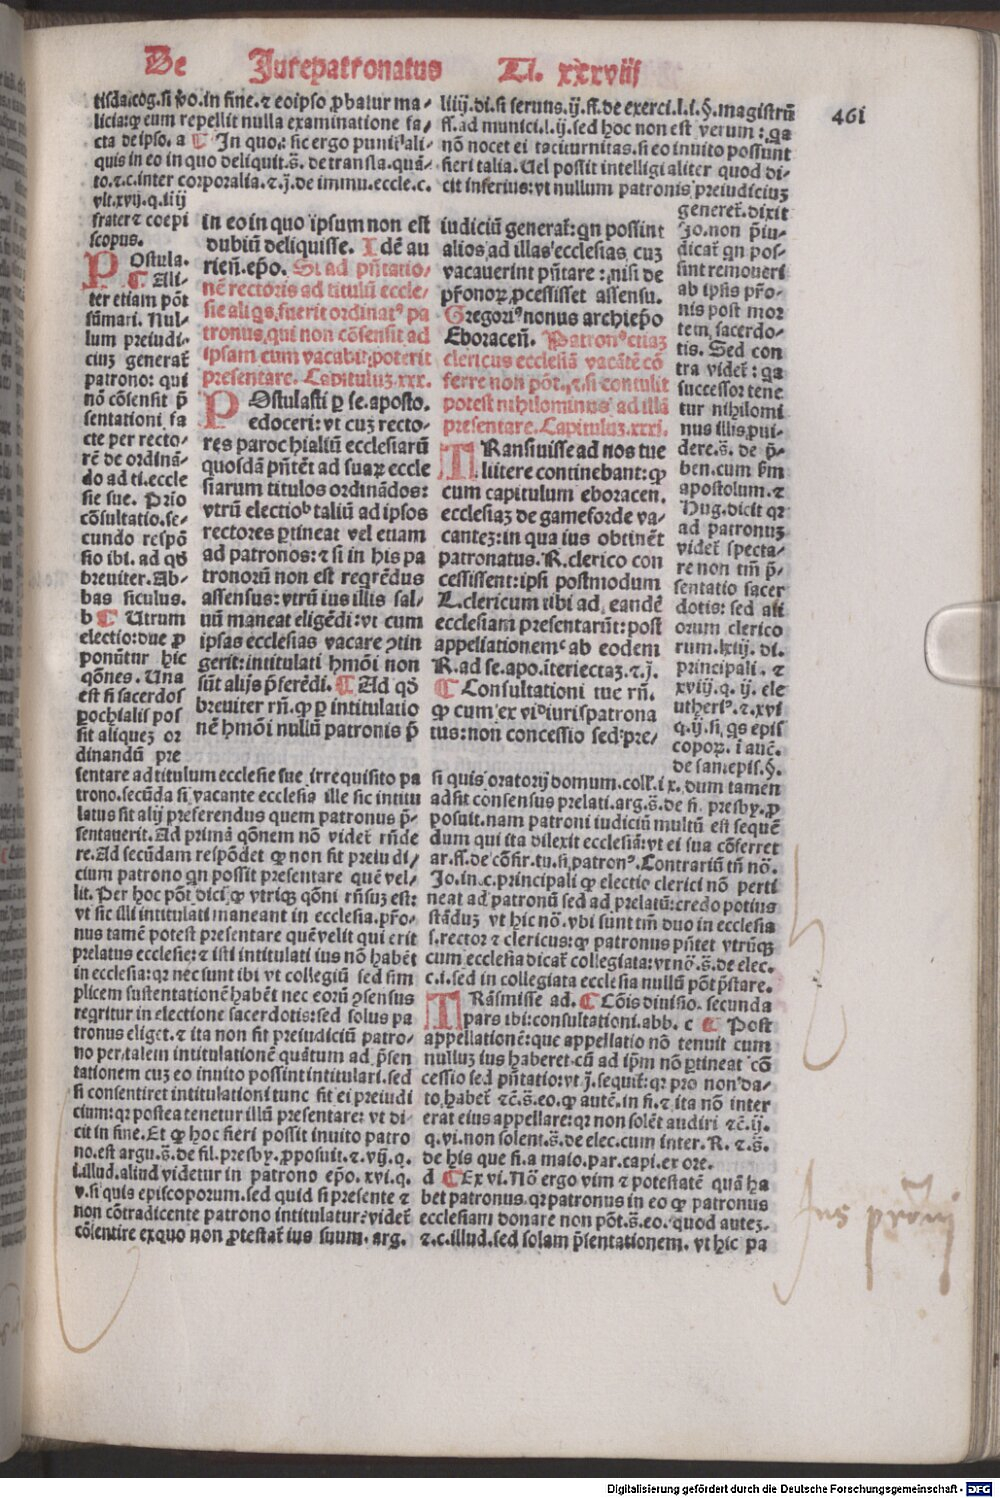 De Jurepatronatus Ti. xxxviij
461
tisda.cog.si ꝟo.in fine.⁊ eoipso ꝓbatur ma-
licia:qꝫ eum repellit nulla examinatione fa-
cta de ipso. a ¶ In quo.: sic ergo puniť ali-
quis in eo in quo deliquit.s̄. de transla.quā-
to.⁊.c.inter corporalia.⁊.j̄.de immu.eccle.c.
vlt.xvij.q.iiij
frater ⁊ coepi
scopus.
POstula.
¶ Ali-
ter etiam pōt
sūmari. Nul-
lum preiudi-
ciuꝫ generať
patrono: qui
nō cōsensit p̄
sentationi fa
cte per recto-
rē de ordinā-
do ad ti.eccle
sie sue. Prīo
cōsultatio.se-
cundo respō
sio ibi. ad qđ
breuiter. Ab-
bas siculus.
b ¶ Utrum
electio:due ꝓ
ponūtur hic
qōnes. Una
est si sacerdos
ꝑochialis pos
sit aliqueꝫ or
dinandū pre
sentare ad titulum ecclesie sue irrequisito pa
trono.secūda si vacante ecclesia ille sic intitu
latus sit alij preferendus quem patronus p̄-
sentauerit. Ad primā qōnem nō videť rn̄de
re. Ad secūdam respōdet ꝙ non fit preiudi-
cium patrono qn possit presentare quē vel-
lit. Per hoc pōt dici ꝙ vtriqꝫ qōni rn̄suꝫ est:
vt sic illi intitulati maneant in ecclesia.pr̄o-
nus tamē potest presentare quē velit qui erit
prelatus ecclesie: ⁊ isti intitulati ius nō habēt
in ecclesia: qr nec sunt ibi vt collegiū sed sim
plicem sustentationē habēt nec eorū ꝯsensus
reqritur in electione sacerdotis:sed solus pa
tronus eliget. ⁊ ita non fit preiudiciū patro-
no per talem intitulationē quātum ad p̄sen
tationem cuꝫ eo inuito possint intitulari.sed
si consentiret intitulationi tunc fit ei preiudi
cium: qr postea tenetur illū presentare: vt di-
cit in fine. Et ꝙ hoc fieri possit inuito patro
no.est argu.s̄.de fil.presby.ꝓposuit.⁊.vij.q.
i.illud.aliud videtur in patrono epō.xvi.q.
v.si quis episcoporum.sed quid si presente ⁊
non cōtradicente patrono intitulatur: videť
cōsentire exquo non ꝓtestať ius suum. arg.
in eo in quo ipsum non est
dubiū deliquisse. Idē au
rień.epō. Si ad pn̄tatio-
nē rectoris ad titulū eccle-
sie aliqs fuerit ordinatꝰ pa
tronus,qui non cōsensit ad
ipsam cum vacabit,poterit
presentare. Capituluꝫ.xxx.
POstulasti ꝑ se.aposto.
edoceri: vt cuꝫ recto-
res parochialiū ecclesiarū
quosdā pn̄tēt ad suaꝝ eccle
siarum titulos ordinādos:
vtrū electio taliū ad ipsos
rectores ꝑtineat vel etiam
ad patronos: ⁊ si in his pa
tronorū non est reqrēdus
assensus: vtrū ius illis sal-
uū maneat eligēdi: vt cum
ipsas ecclesias vacare ꝯtin
gerit: intitulati hmōi non
sūt alijs p̄ferēdi. ¶ Ad qđ
breuiter rn̄.ꝙ ꝑ intitulatio
nē hmōi nullū patronis p̄
liiij.di.si seruus.ij.ff.de exerci.l.i.§.magistrū
ff.ad munici.l.ij.sed hoc non est verum: qa
nō nocet ei taciturnitas.si eo inuito possunt
fieri talia. Uel possit intelligi aliter quod di-
cit inferius: vt nullum patronis preiudiciuꝫ
iudiciū generať: qn possint
alios ad illas ecclesias cuꝫ
vacauerint pn̄tare: nisi de
pr̄onoꝝ ꝓcessisset assensu.
Gregoriꝰ nonus archiepō
Eboraceń. Patronꝰ etiaꝫ
clericus ecclesiā vacātē cō
ferre non pōt, ⁊ si contulit
potest nihilominus ad illā
presentare. Capituluꝫ.xxxi.
TRansiuisse ad nos tue
littere continebant: ꝙ
cum capitulum eboracen.
ecclesiaꝫ de gameforde va-
canteꝫ: in qua ius obtinēt
patronatus. R. clerico con
cessissent: ipsi postmodum
L.clericum tibi ad eandē
ecclesiam presentarūt: post
appellationemᶜ ab eodem
R.ad se.apo.īteriectaꝫ.⁊.j̄.
¶ Consultationi tue rn̄.
ꝙ cum ex viᵈ iurispatrona
tus: non concessio sed pre-
generet. dixit
Jo.non p̄iu-
dicať qn pos-
sint remoueri
ab ipsis pr̄o-
nis post mor
tem sacerdo-
tis. Sed con
tra videť: qa
successor tene
tur nihilomi
nus illis ꝓui-
dere.s̄. de p̄-
ben.cum sm̄
apostolum. ⁊
Hug.dicit qr
ad patronuꝫ
videť specta-
re non tm̄ p̄-
sentatio sacer
dotis: sed ali
orum clerico
rum.lxiij. di.
principali. ⁊
xviij. q. ij. ele
utheriꝰ. ⁊.xvi
q.ij.si qs epis
copoꝝ. i auč.
de sanc.epis.§.
si quis oratorij domum. coll'. ix. dum tamen
adsit consensus prelati.arg.s̄.de fi. presby.ꝓ
posuit.nam patroni iudiciū multū est sequē
dum qui ita dilexit ecclesiā: vt ei sua cōferret
ar.ff.de cōfir.tu.si patronꝰ. Contrariū tn̄ nō.
Jo.in.c.principali ꝙ electio clerici nō perti
neat ad patronū sed ad prelatū: credo potius
stāduꝫ vt hic nō. vbi sunt tm̄ duo in ecclesia
s.rector ⁊ clericus: ꝙ patronus pn̄tet vtrūqꝫ
cum ecclesia dicať collegiata: vt nō.s̄.de elec.
c.i.sed in collegiata ecclesia nullū pōt p̄stare.
TRāsmisse ad. ¶ Cōis diuisio. secunda
pars ibi: consultationi.abb. c ¶ Post
appellationē: que appellatio nō tenuit cum
nulluꝫ ius haberet cū ad ip̄m nō ꝑtineat cō
cessio sed pn̄tatio: vt j̄.sequiť: qr pro non da-
to habeť ⁊č.s̄.eo.ꝙ autē.in fi.⁊ ita nō inter
erat eius appellare: qr non solēt audiri ⁊č.ij.
q.vi.non solent.s̄.de elec.cum inter. R. ⁊.s̄.
de his que fi.a maio.par.capi.ex ore.
d ¶ Ex vi. Nō ergo vim ⁊ potestatē quā ha
bet patronus.qr patronus in eo ꝙ patronus
ecclesiam donare non pōt.s̄.eo.quod auteꝫ.
⁊.c.illud.sed solam p̄sentationem. vt hic pa
Digitalisierung gefördert durch die Deutsche Forschungsgemeinschaft - DFG